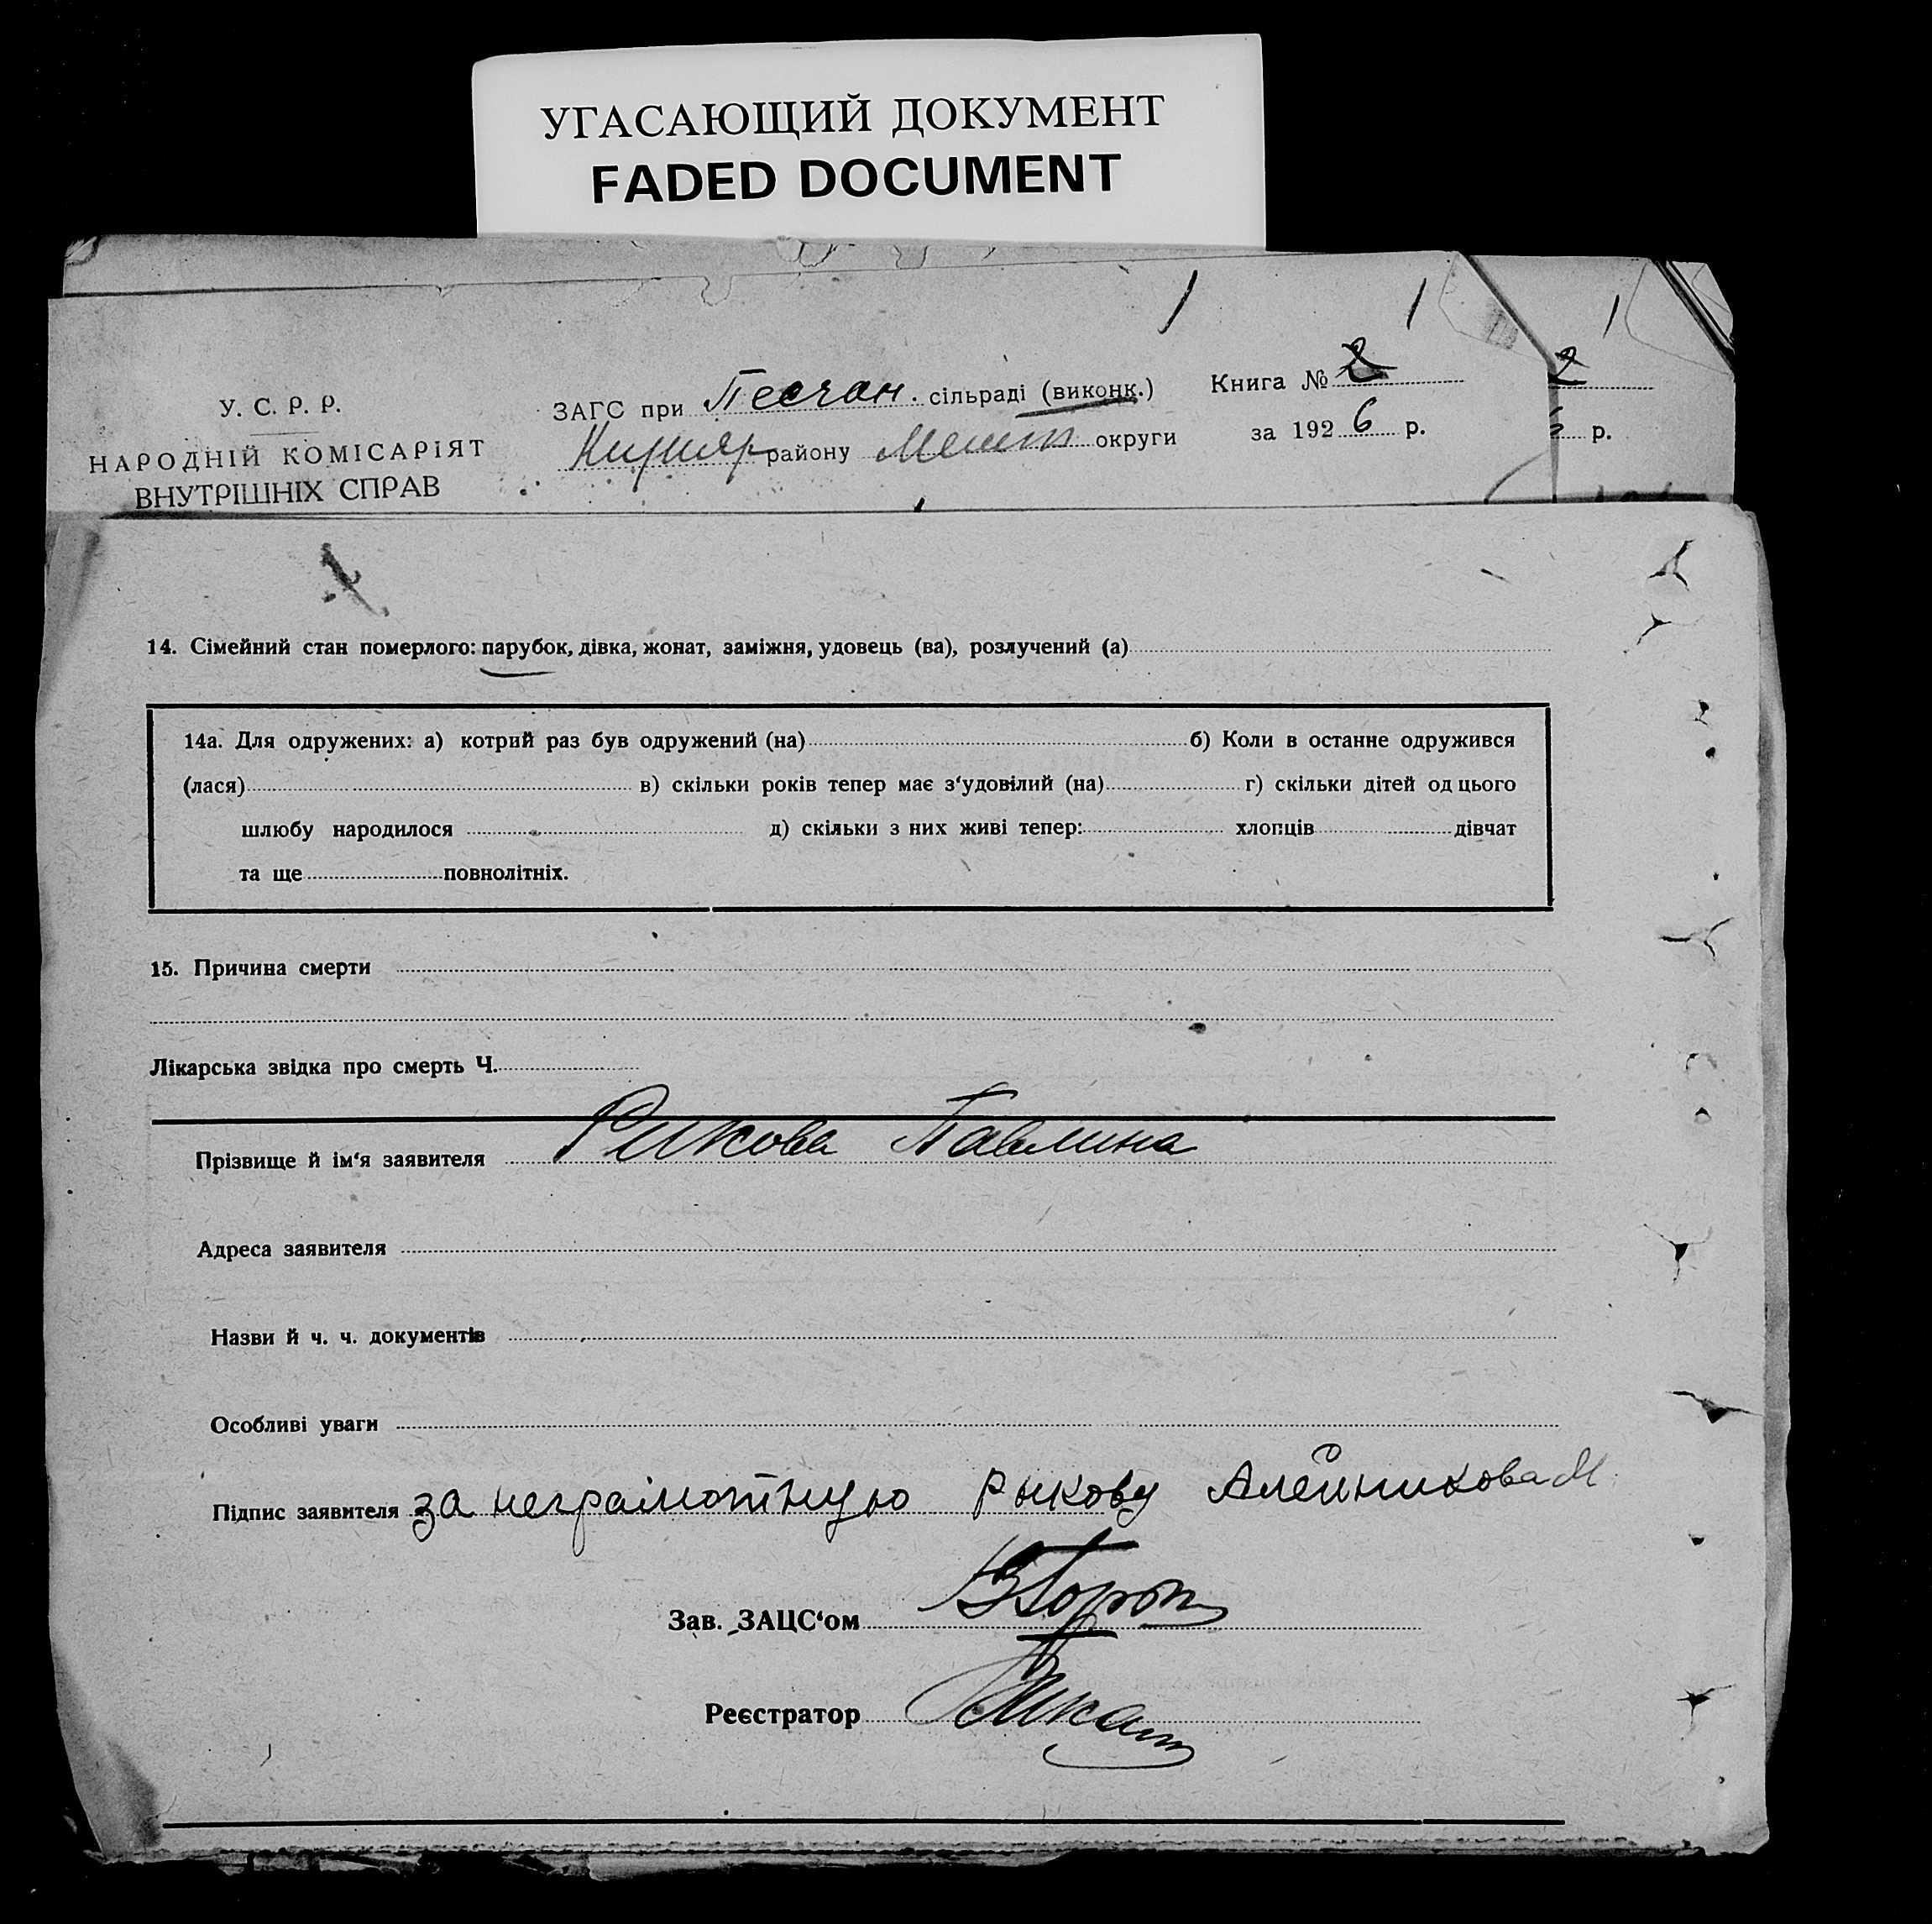 УГАСАЮЩИЙ ДОКУМЕНТ
FADED DOCUMENT
1 1 1
У. С. Р. Р.
НАРОДНІЙ КОМІСАРІЯТ
ВНУТРІШНІХ СПРАВ
ЗАГС при Песчан. сільраді (виконк.)
району Мелит округи
Книга № 2
за 1926 р.
2
6 р.
14. Сімейний стан померлого: парубок, дівка, жонат, заміжня, удовець (ва), розлучений (а)
14а. Для одружених: а) котрий раз був одружений (на) б) Коли в останне одружився
(лася) в) скільки років тепер має з‘удовілий (на) г) скільки дітей од цього
шлюбу народилося д) скільки з них живі тепер: хлопців дівчат
та ще повнолітніх.
15. Причина смерти
Лікарська звідка про смерть Ч.
Прізвище й ім‘я заявителя Рикова Павлина
Адреса заявителя
Назви й ч. ч. документів
Особливі уваги
Підпис заявителя за неграмотную Рыкову Алейникова М
Зав. ЗАЦС‘ом
Реєстратор